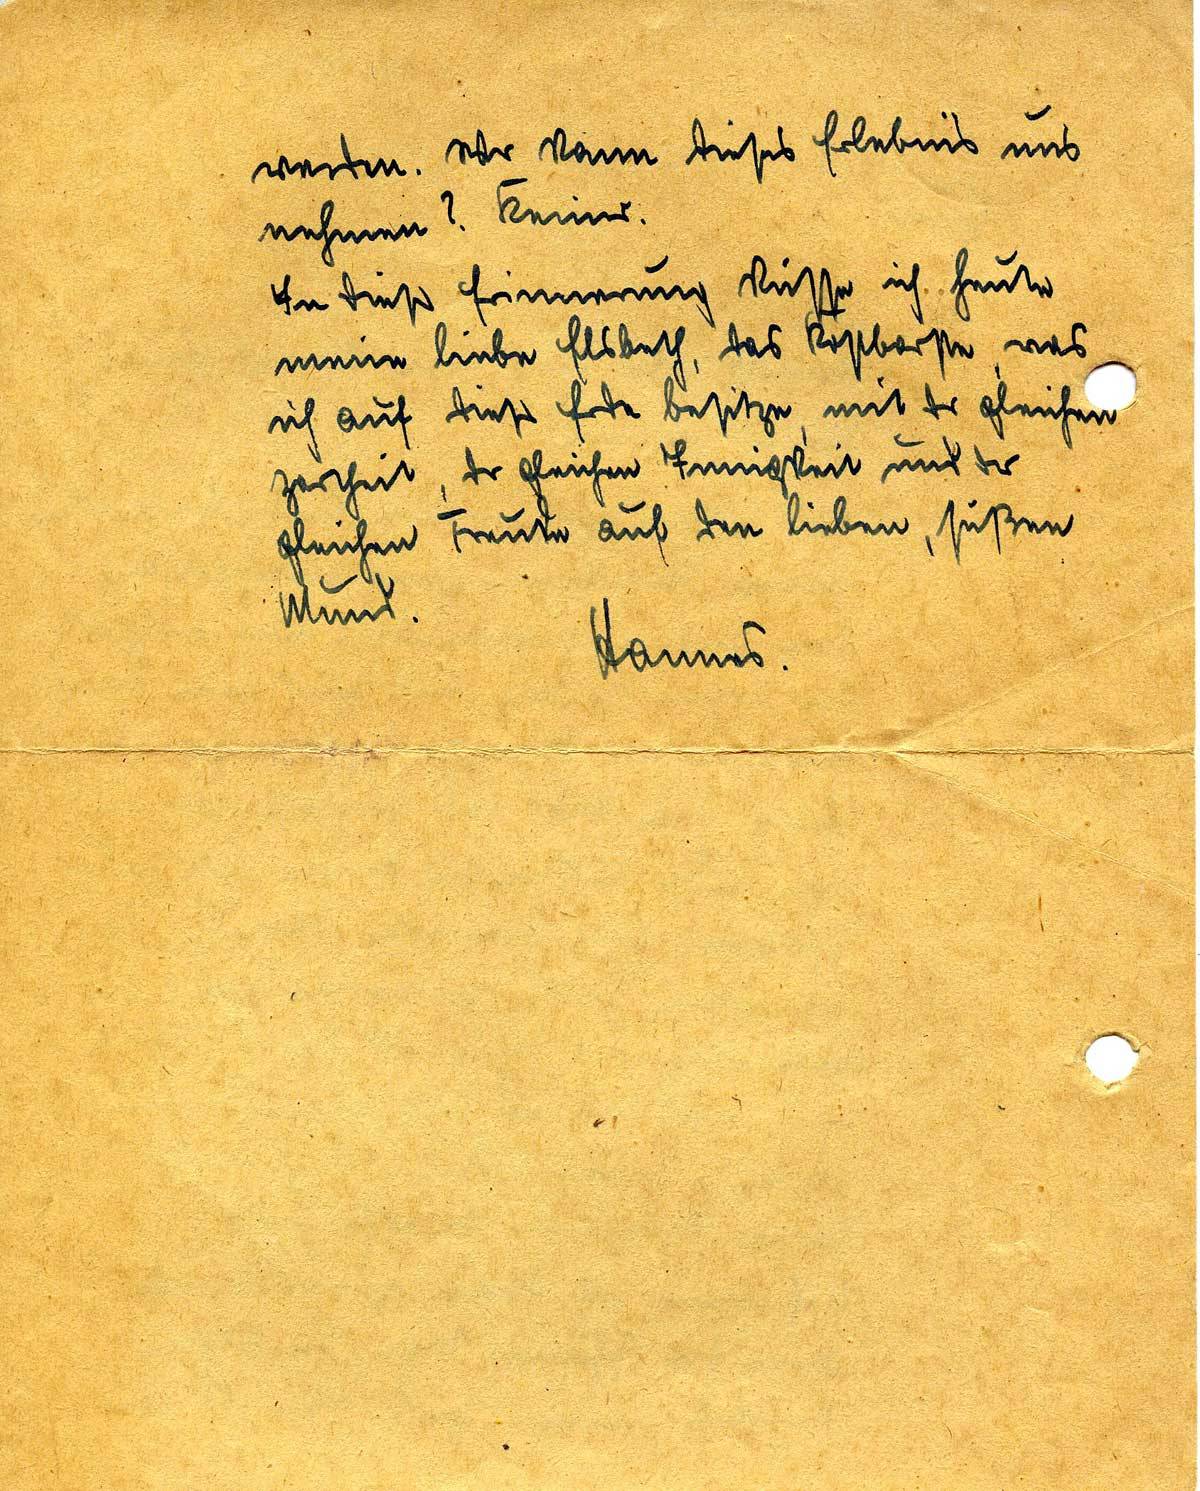 werden. Wer kann dieses Erlebnis uns
nehmen? Keiner.
In dieser Erinnerung küsse ich heute
meine liebe Elsbeth, das Kostbarste, was
ich auf dieser Erde besitze, mit der gleichen
Zartheit, der gleichen Innigkeit und der
gleichen Freude auf den lieben, süßen
Mund.
Hannes.